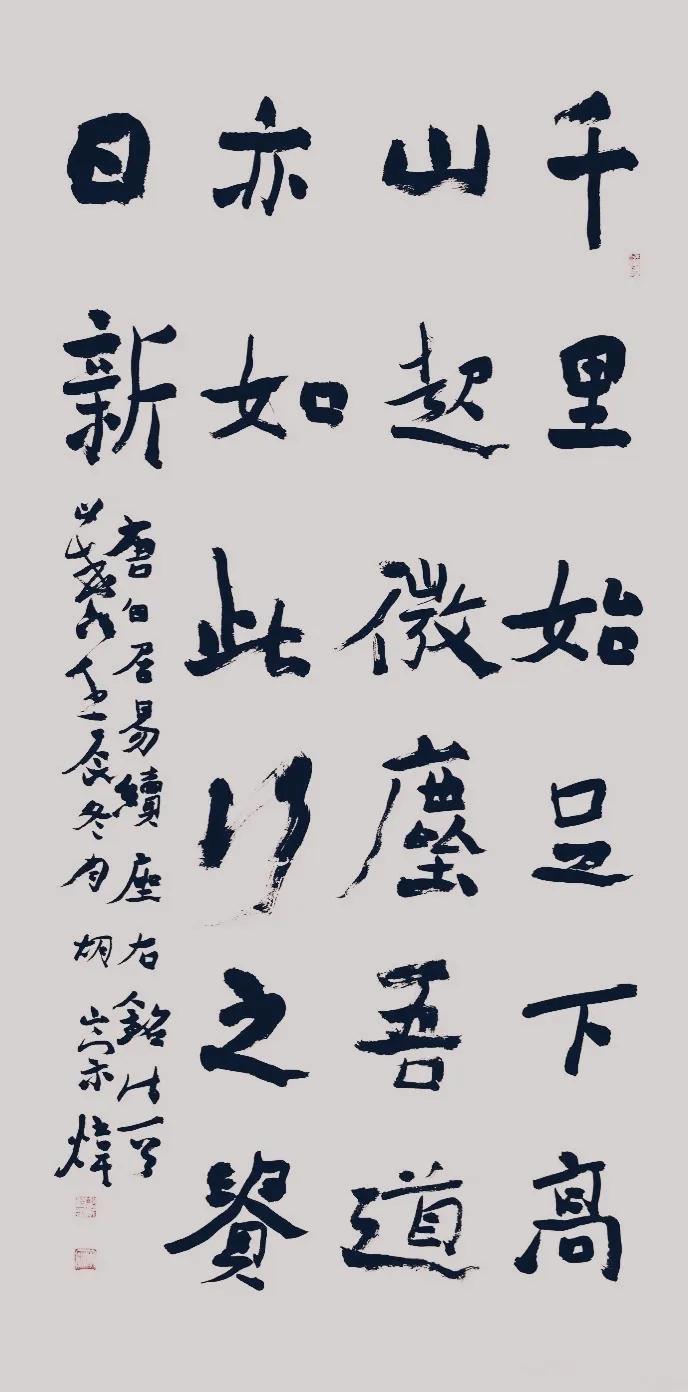 千里始足下高
山起微塵吾道
亦如此行之貴
日新
唐白居易續座右銘
歲次壬辰冬月胡崇煒